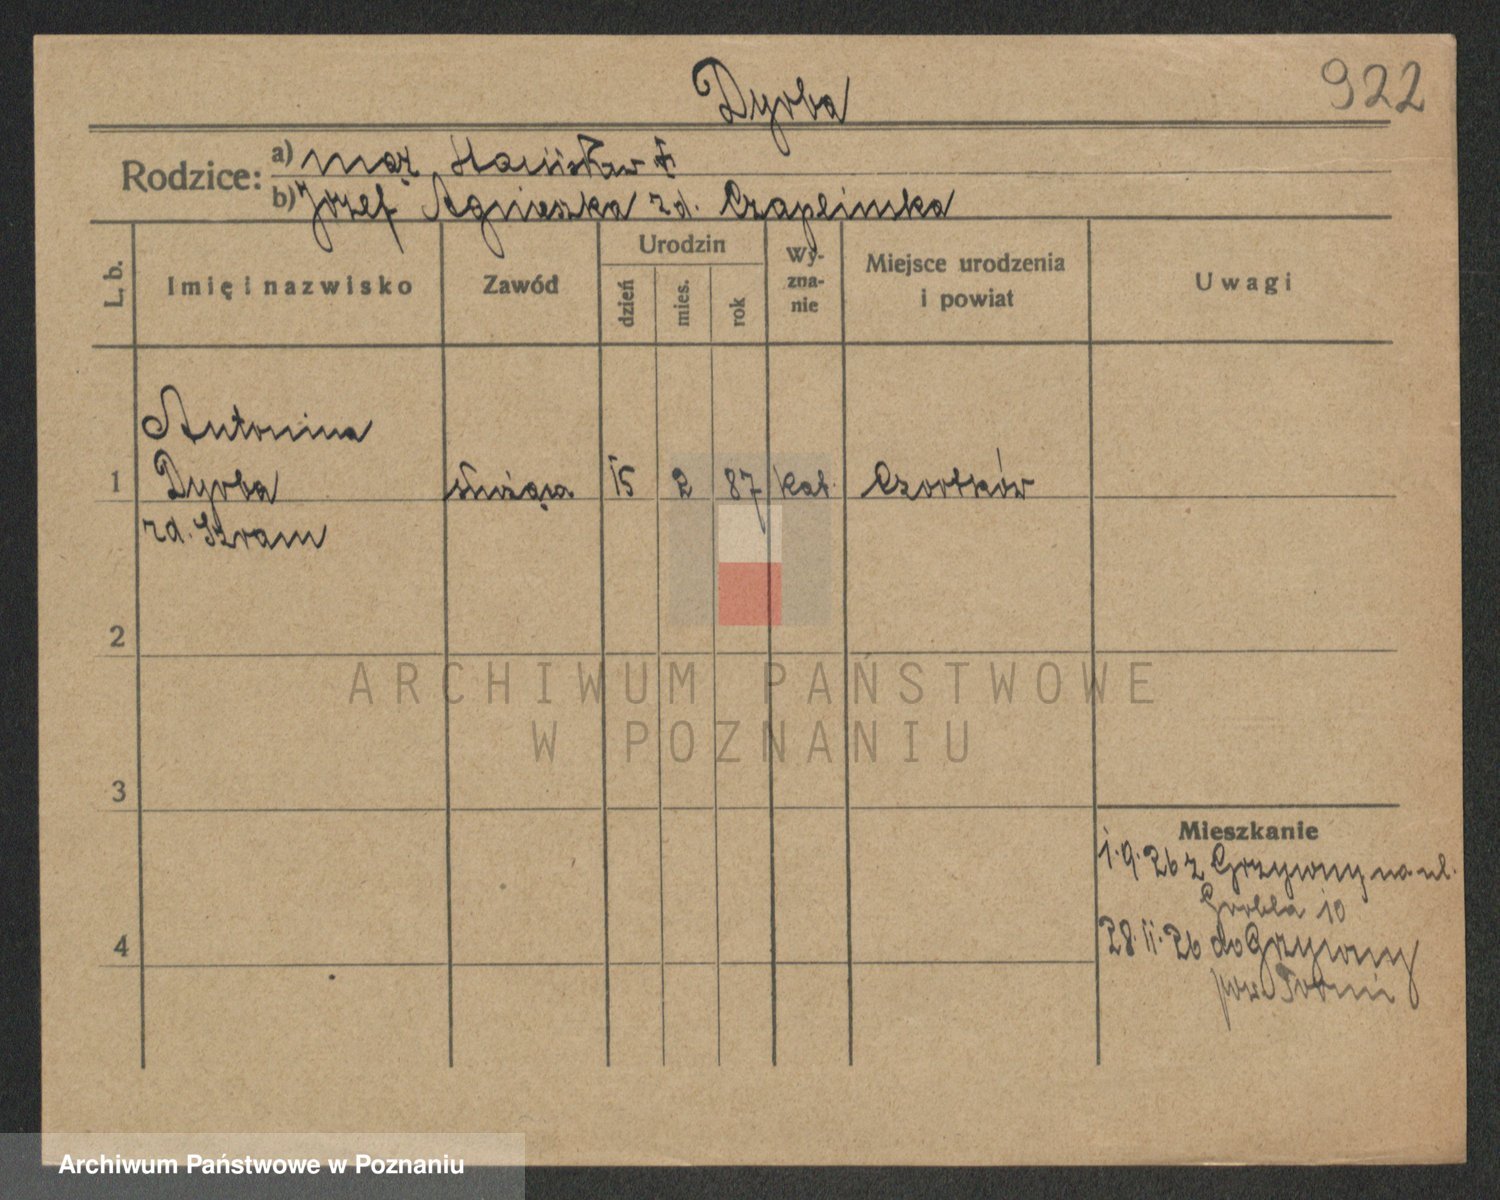 Dyrba
922
Rodzice:
a) mąż Stanisław †
b) Józef Agnieszka zd. Czaplinska
L. b.
Imię i nazwisko
Zawód
Urodzin
dzień
mies.
rok
Wy-
zna-
nie
Miejsce urodzenia
i powiat
Uwagi
Antonina
1 Dyrba służąca 15 2 87 kat. Czortków
zd. Szram
2
ARCHIWUM PAŃSTWOWE
W POZNANIU
3
Mieszkanie
1.9.26 z Grzywny na ul.
Grobla 10
4
28.11.26 do Grzywny
pow. Toruń
Archiwum Państwowe w Poznaniu